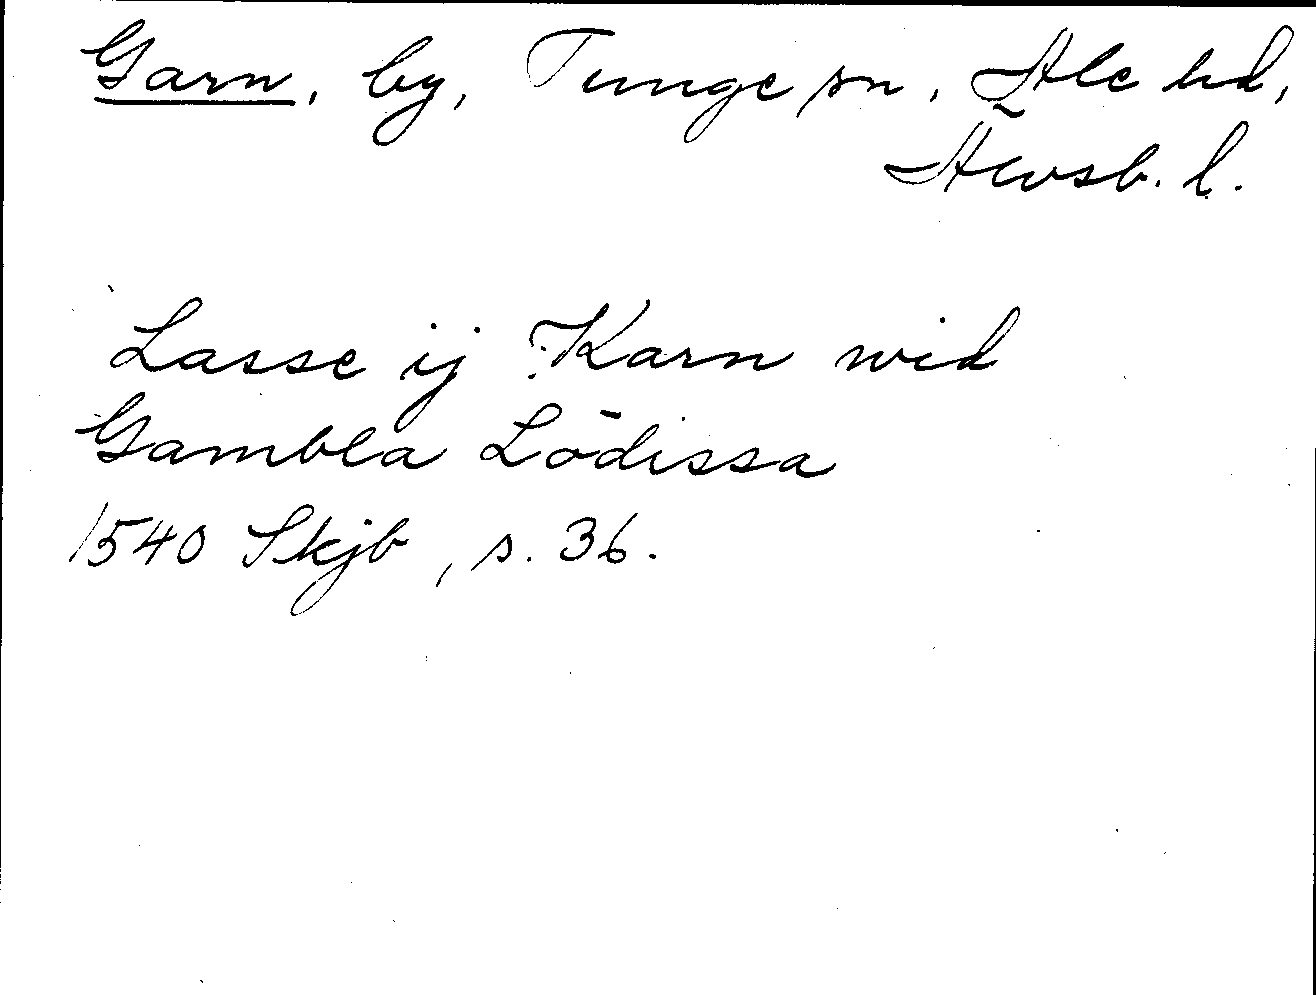 Garn, by, Tunge sn, Ale hd,
Älvsb. l.
Lasse ij Karn wid
Gambla Lödissa
1540 Skjb, s. 36.